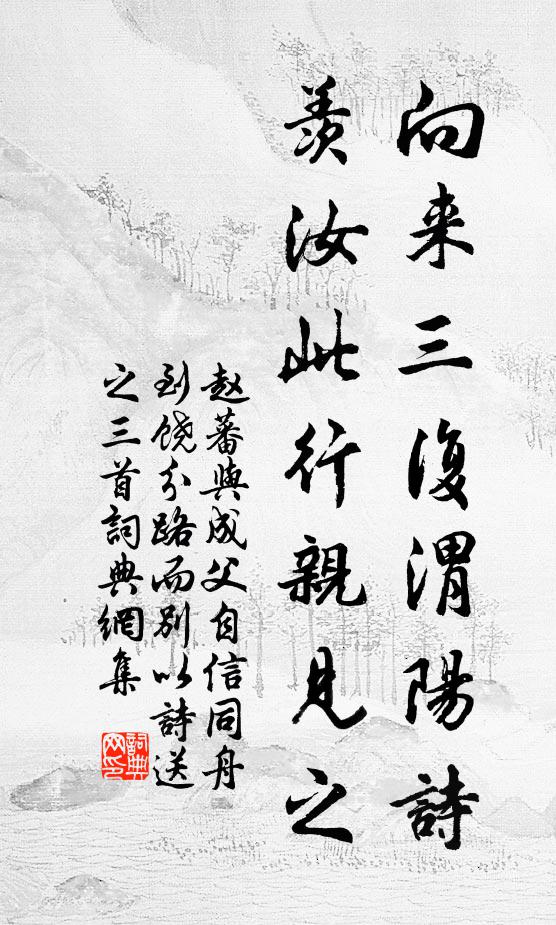 向来三復渭陽詩
羨汝此行親見之
赵蕃與成父自信同舟
到饶分路而别以詩送
之三首詞典網集
詞典網印